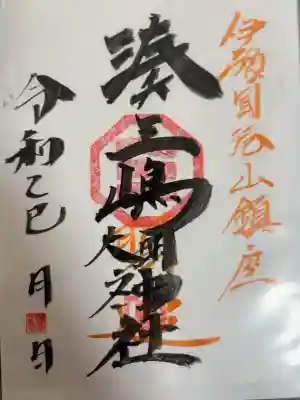 伊勢国名山鎮座
湊三嶋大明神社
令和乙巳 月 日